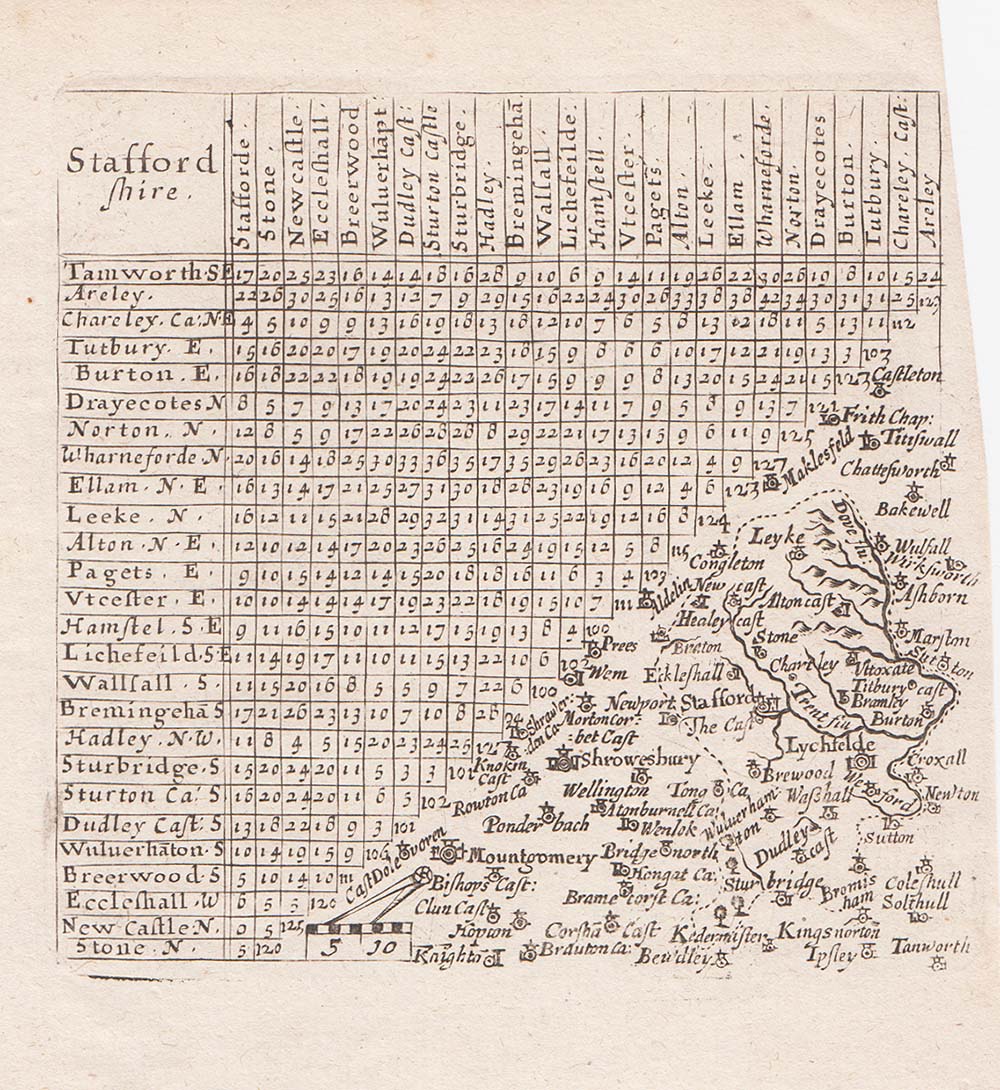 Stafford
shire.
Stafforde.
Stone.
Newcastle.
Eccleshall.
Breerwood
Wuluerhāpt
Dudley Cast:
Sturton Castle
Sturbridge.
Hadley.
Bremingehā.
Walsall.
Lichefeilde.
Hamstell.
Vtcester.
Pagets.
Alton.
Leeke.
Ellam.
Wharneforde.
Norton.
Drayecotes
Burton.
Tutbury.
Chareley Cast:
Areley
Tamworth·SE 17 20 25 23 16 14 14 18 16 28 9 10 6 9 14 11 19 26 22 30 26 19 8 10 15 24
Areley. 22 26 30 25 16 13 12 7 9 29 15 16 22 24 30 26 33 38 38 42 34 30 31 31 25 123
Chareley. Ca: N·E 4 5 10 9 9 13 16 19 18 13 18 12 10 7 6 5 8 13 12 18 11 5 13 11 112
Tutbury. E. 15 16 20 20 17 19 20 24 22 23 18 15 9 8 6 6 10 17 12 21 19 13 3 103
Burton. E. 16 18 22 22 18 19 19 24 22 26 17 15 9 9 9 8 13 20 15 24 21 15 123
Drayecotes N 8 5 7 9 13 17 20 24 23 11 23 17 14 11 7 9 5 8 9 13 7 121
Norton. N. 12 8 5 9 17 22 26 28 28 8 29 22 21 17 13 15 9 6 11 9 125
Wharneforde·N. 20 16 14 18 25 30 33 36 35 17 35 29 26 23 16 20 12 4 9 127
Ellam. N. E. 16 13 14 17 21 25 27 31 30 18 28 23 19 16 9 12 4 6 123
Leeke. N. 16 12 11 15 21 28 29 32 31 14 31 25 22 19 12 16 8 124
Alton. N·E. 12 10 12 14 17 20 23 26 25 16 24 19 15 12 5 8 115
Pagets. E. 9 10 15 14 12 14 15 20 18 18 16 11 6 3 4 103
Vtcester. E. 10 10 14 14 14 17 19 23 22 18 19 15 10 7 111
Hamstel. S. E 9 11 16 15 10 11 12 17 15 19 13 8 4 100
Lichefeild·S·E 11 14 19 17 11 10 11 15 13 22 10 6 102
Wallsall. S. 11 15 20 16 8 5 5 9 7 22 6 100
Bremingehā S 17 21 26 23 13 10 7 10 8 28 94
Hadley. N·W. 11 8 4 5 15 20 23 24 25 127
Sturbridge·S 15 20 24 20 11 5 3 3 101
Sturton Ca: S 16 20 24 20 11 6 5 102
Dudley Cast: S 13 18 22 18 9 3 101
Wuluerhāton·S 10 14 19 15 9 106
Breerwood·S 5 10 14 10 111
Eccleshall.W 6 5 3 120
New Castle N. 0 5 125
Stone. N. 5 120
5 10
Castleton
Frith Chap:
Titiswall
Maklesfeld
Chattesworth
Bakewell
Dove flu
Leyke
Wulfall
Wirksworth
Congleton
Ashborn
New cast
Alton cast
Healey cast
Marston
Stone
Prees
Bruton
Sutton
Wem
Eckleshall
Chartley
Vttoxate
Titbury cast
Bromley
Newport
Stafford
Burton
Shrawerden Ca:
Morton Corbet Cast
The Cast
Trent flu
Lychfelde
Croxall
Shrowesbury
Knokin Cast
Brewood
Wellington
Tong Ca
Waßhall
Newton
Rowton Ca
Atonburnell Ca:
Wuluerhamton
Ponderbach
Wenlok
Sutton
Dudley cast
Mountgomery
Bridgenorth
Bishops Cast:
Hongat Ca:
Sturbridge
Bromisham
Coleshull
Solihull
Clun Cast
Hopton
Corsha Cast
Kidermister
Kingsnorton
Knighto
Brauton Ca:
Bewdley
Ipsley
Tanworth